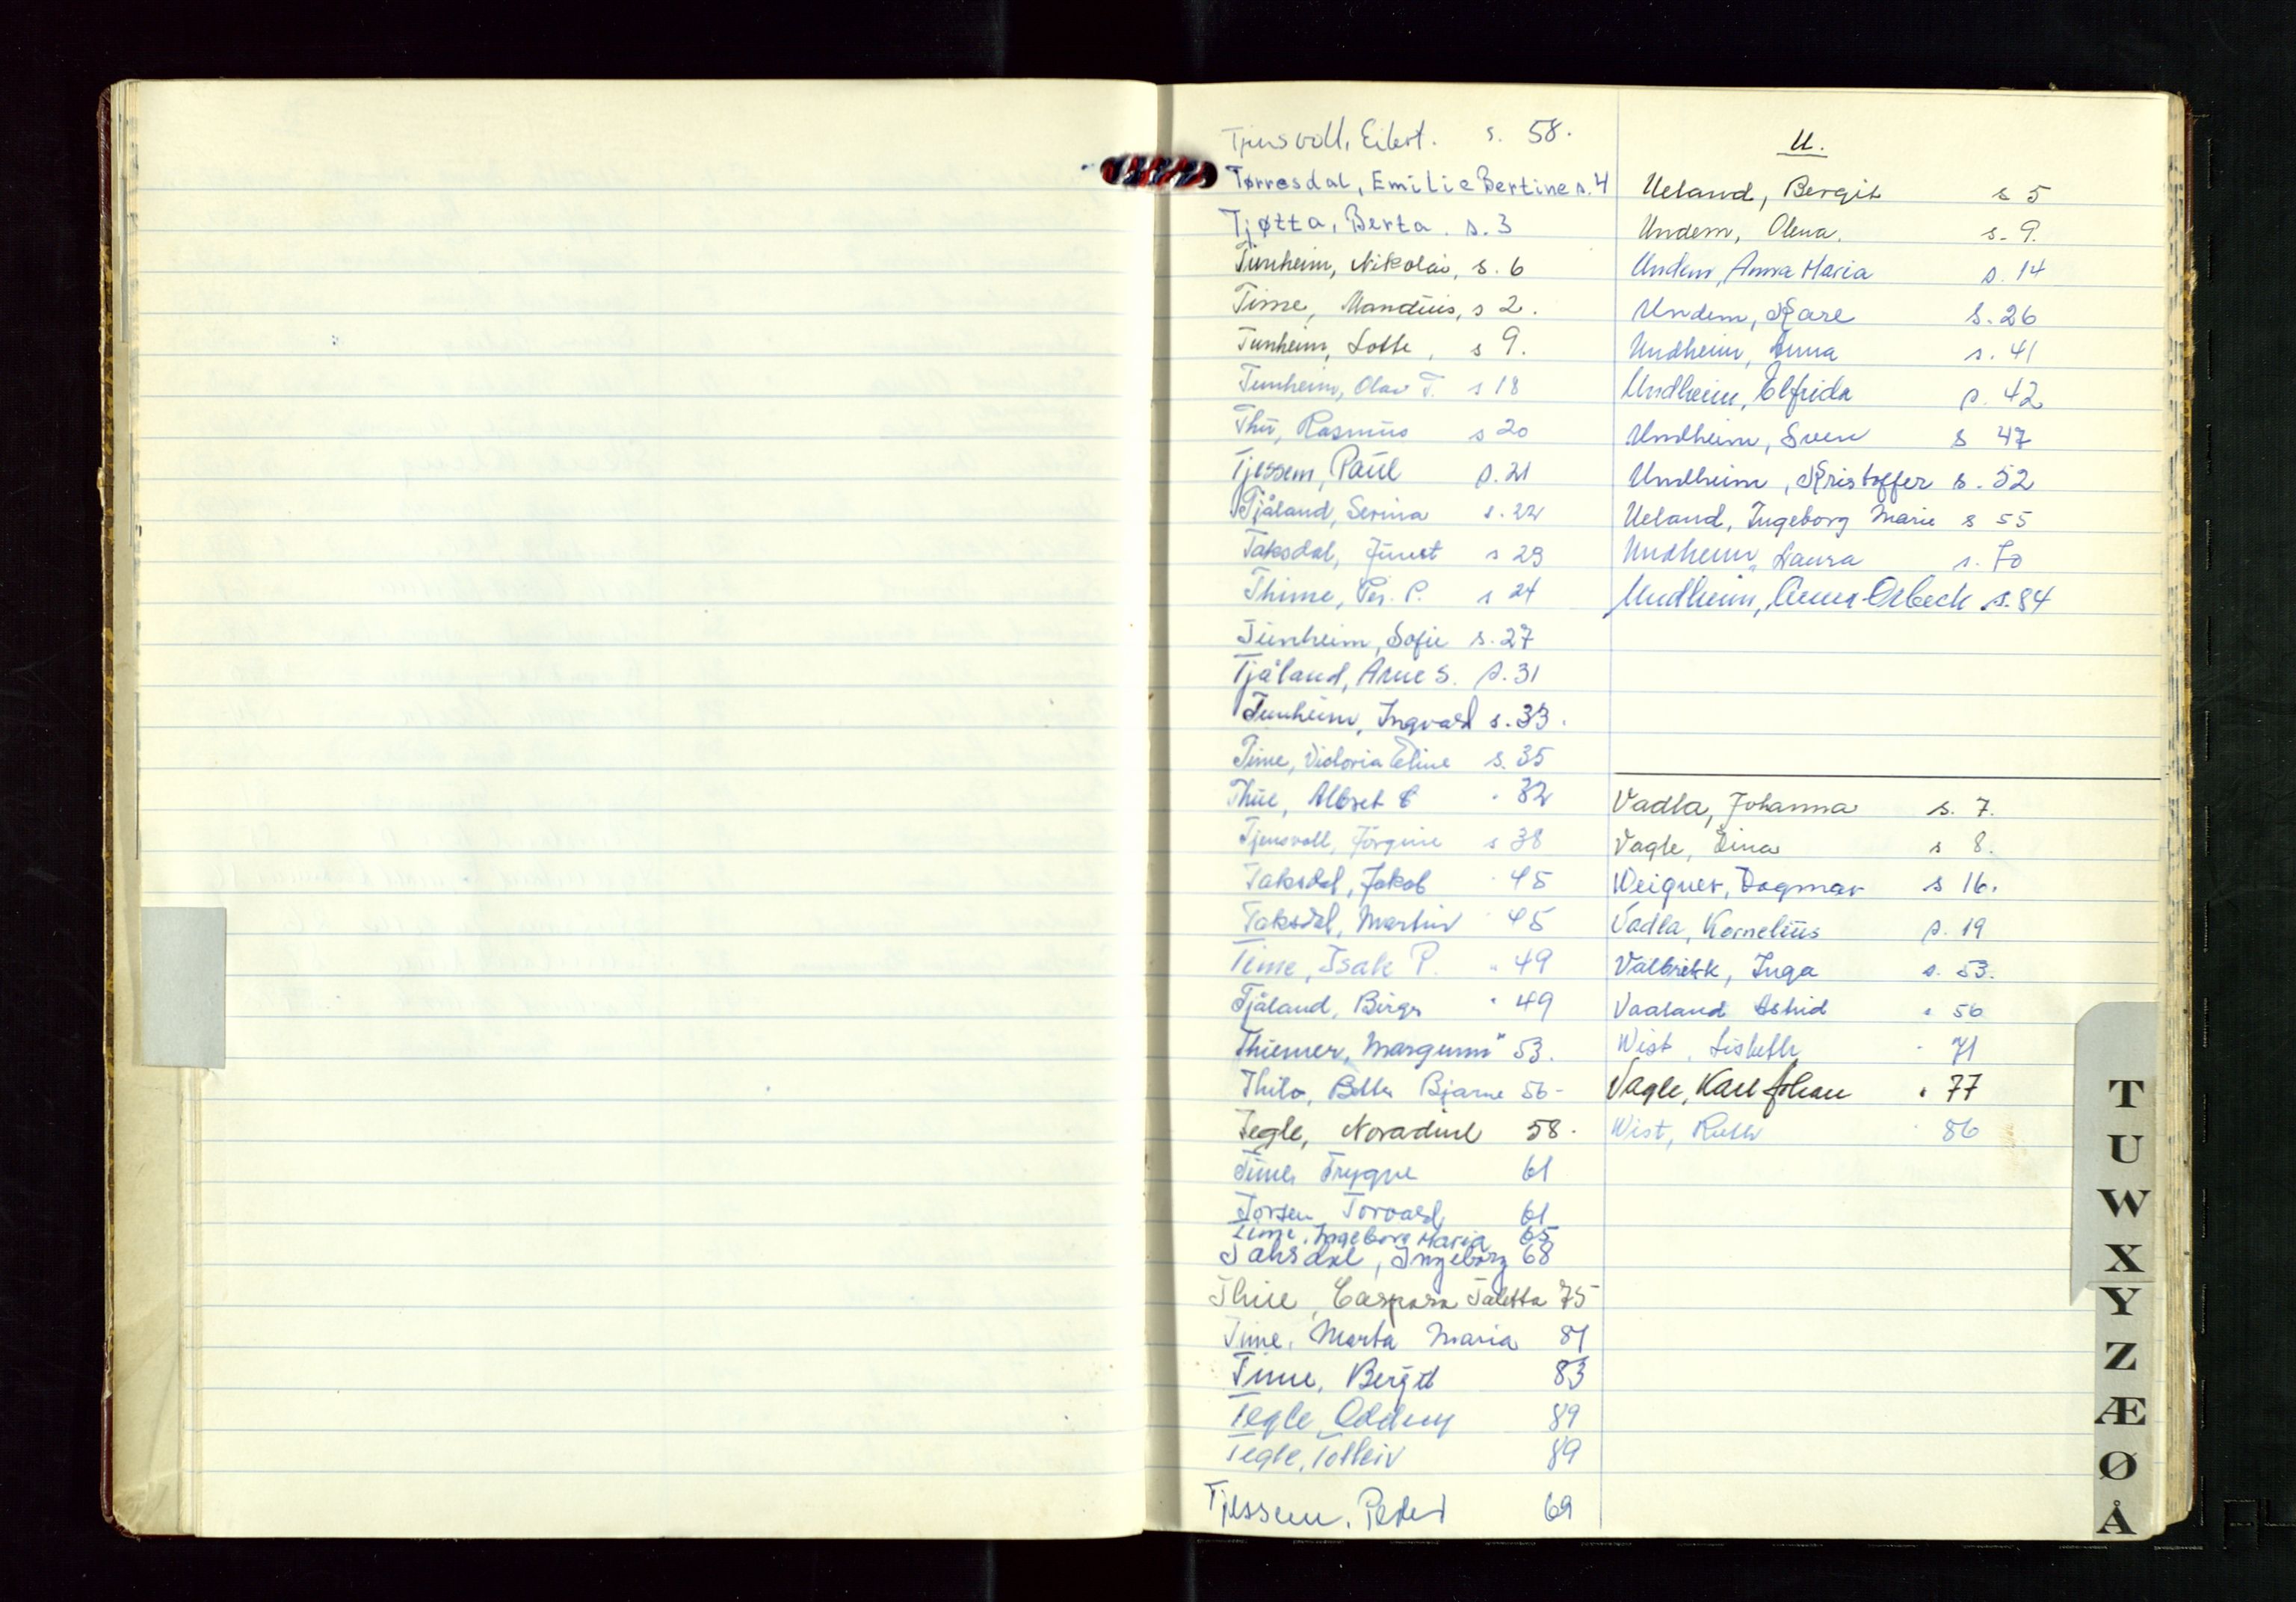 Tjensvoll, Eilert. s. 58.
Tørresdal, Emilie Bertine s. 4
Tjøtta, Berta. s. 3
Tunheim, Nikolai, s. 6
Time, Mandius, s 2.
Tunheim, Lotte, s 9.
Tunheim, Olav T. s 18
Thu, Rasmus s 20
Tjessem, Paul s. 21
Tjåland, Serina s. 22
Taksdal, s 23
Thime, Per. P. s 24
Tunheim, Sofie s. 27
Tjåland, Arne S. s. 31
Tunheim, Ingvald s. 33.
Time, Victoria Eline s. 35
Thue, Albret " 32
Tjensvoll, Jørgine s 38
Taksdal, Jakob " 45
Taksdal, Martin " 45
Time, Isak P. " 49
Tjåland, Birger " 49
Thiemer, Margunn " 53.
Thilo, Bjarne 56-
Tegle, 58.
Time, Trygve 61
Torsen Torvald 61
Time, Ingeborg Maria 65
Taksdal, Ingeborg 68
Thue, Caspara Taletta 75
Time, Marta Maria 81
Time, Bergit 83
Tegle, Oddny 89
Tegle, Tolleiv 89
Tjessem, Peder 69
U.
Ueland, Bergit s 5
Undem, Olena. s. 9.
Undem, Anna Maria s. 14
Undem, Kare s. 26
Undheim, Anna s. 41
Undheim, Elfrida s. 42
Undheim, Sven s 47
Undheim, Kristoffer s. 52
Ueland, Ingeborg Marie s 55
Undheim, Laura s. 70
Undheim, Anna Orbeck s. 84
Vadla, Johanna s. 7.
Vagle, Dina s 8.
Weigner, Dagmar s 16.
Vadla, Kornelius s. 19
Valbrekk, Inga s. 53.
Vaaland Astrid " 56
Wist, Lisbeth " 71
Vagle, Karl Johan " 77
Wist, Ruth " 86
T
U
W
X
Y
Z
Æ
Ø
Å